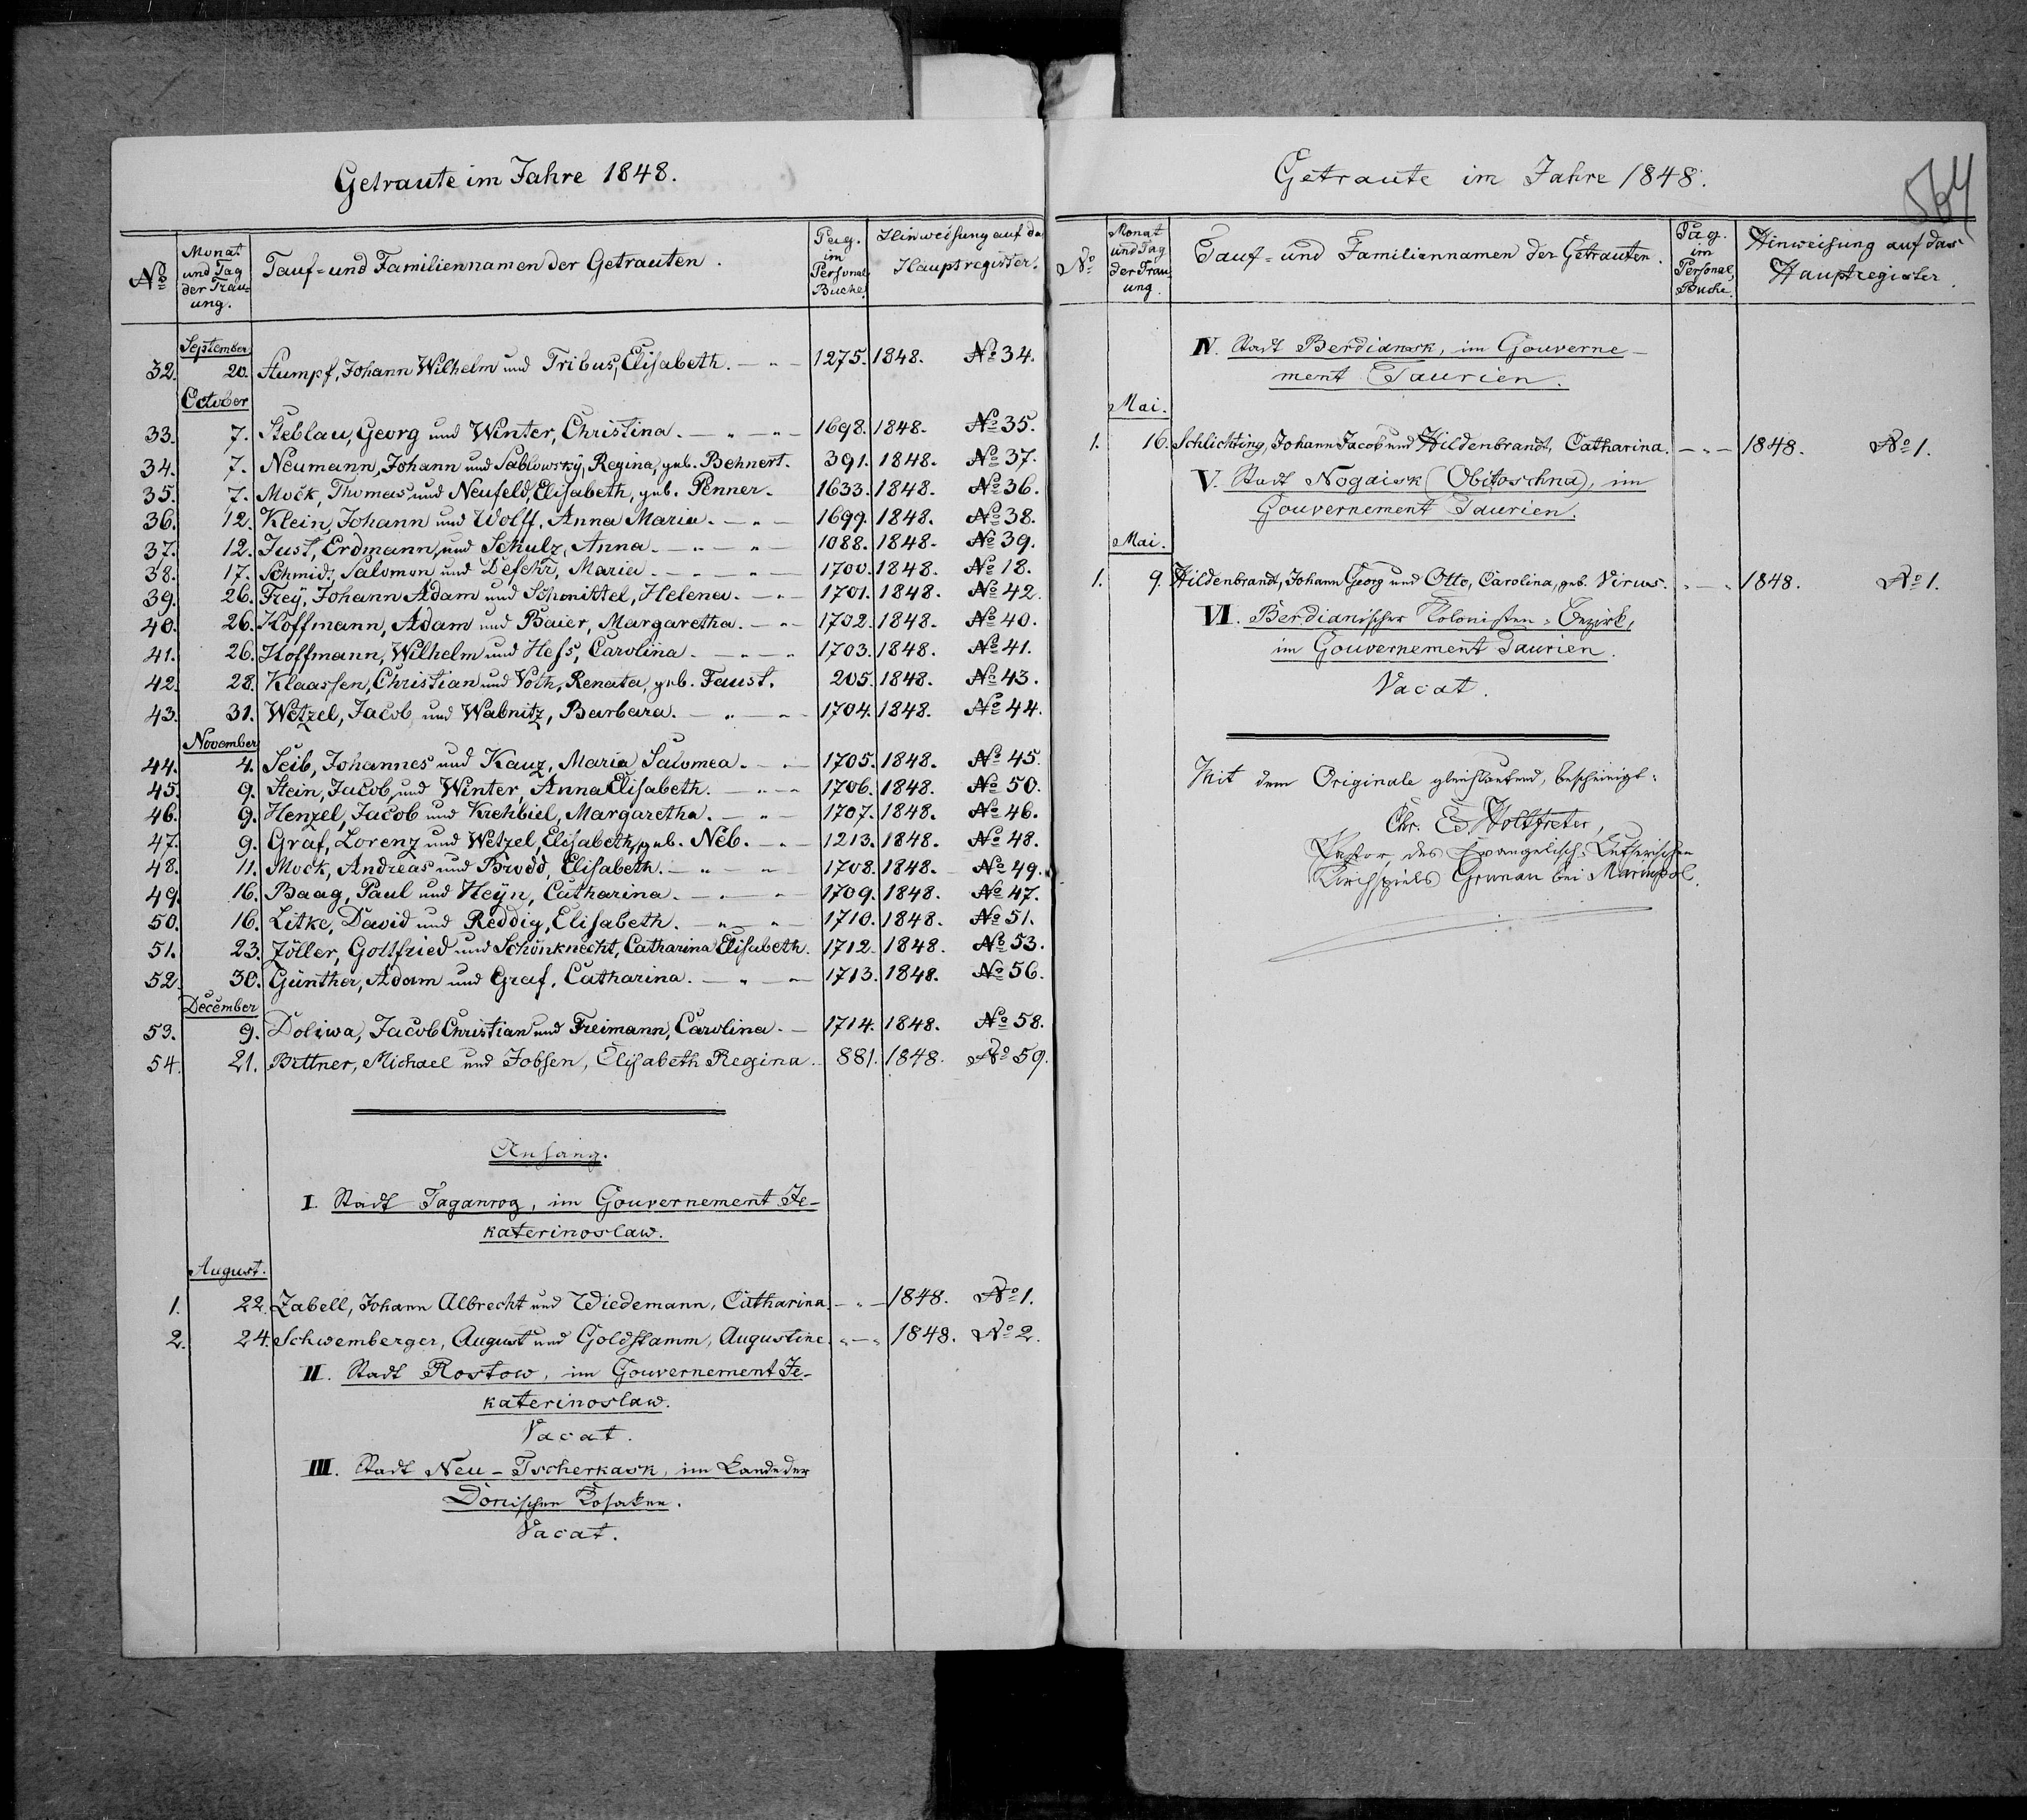 Getraute im Jahre 1848.
No Monat und Tag der Trauung. Tauf- und Familiennamen der Getrauten. Pag. im Personal Buche. Hinweisung auf das Hauptregister.
September
32. 20. Stumpf, Johann Wilhelm und Tribus, Elisabeth. — " — 1275. 1848. No 34.
October
33. 7. Steblau, Georg und Winter, Christina. — " — " — 1698. 1848. No 35.
34. 7. Neumann, Johann und Sablowsky, Regina, geb. Behnert. 391. 1848. No 37.
35. 7. Mock, Thomas und Neufeld, Elisabeth, geb. Penner. 1633. 1848. No 36.
36. 12. Klein, Johann und Wolff, Anna Maria. — " — 1699. 1848. No 38.
37. 12. Just, Erdmann, und Schulz, Anna. — " — " — 1088. 1848. No 39.
38. 17. Schmid, Salomon und Defehr, Maria. — " — " — 1700. 1848. No 18.
39. 26. Frey, Johann Adam und Schmittel, Helena. — " — 1701. 1848. No 42.
40. 26. Hoffmann, Adam und Baier, Margaretha. — " — 1702. 1848. No 40.
41. 26. Hoffmann, Wilhelm und Hess, Carolina. — " — " 1703. 1848. No 41.
42. 28. Klaassen, Christian und Voth, Renata, geb. Faust. 205. 1848. No 43.
43. 31. Wetzel, Jacob und Wabnitz, Barbara. — " — " — 1704. 1848. No 44.
November
44. 4. Seib, Johannes und Kauz, Maria Salomea. — " — 1705. 1848. No 45.
45. 9. Stein, Jacob, und Winter, Anna Elisabeth. — " — 1706. 1848. No 50.
46. 9. Henzel, Jacob und Krehbiel, Margaretha. — " — 1707. 1848. No 46.
47. 9. Graf, Lorenz und Wetzel, Elisabeth, geb. Neb. — " — 1213. 1848. No 48.
48. 11. Mock, Andreas und Brodd, Elisabeth. — " — " — 1708. 1848. No 49.
49. 16. Baag, Paul und Heyn, Catharina. — " — " — 1709. 1848. No 47.
50. 16. Litke, David und Reddig, Elisabeth. — " — " 1710. 1848. No 51.
51. 23. Zöller, Gottfried und Schönknecht, Catharina Elisabeth. 1712. 1848. No 53.
52. 30. Günther, Adam und Graf, Catharina. — " — 1713. 1848. No 56.
December
53. 9. Doliwa, Jacob Christian und Freimann, Carolina. — 1714. 1848. No 58.
54. 21. Bittner, Michael und Jobsen, Elisabeth Regina. 881. 1848. No 59.
Anhang.
I. Stadt Taganrog, im Gouvernement Je-
katerinoslaw.
August.
1. 22. Zabell, Johann Albrecht und Wiedemann, Catharina. — " — 1848. No 1.
2. 24. Schwemberger, August und Goldstamm, Augustine. " — " 1848. No 2.
II. Stadt Rostow, im Gouvernement Je-
katerinoslaw.
Vacat.
III. Stadt Neu-Tscherkask, im Lande der
Donischen Kosaken.
Vacat.
564
Getraute im Jahre 1848.
No Monat und Tag der Trauung. Tauf- und Familiennamen der Getrauten. Pag. im Personal Buche. Hinweisung auf das Hauptregister.
IV. Stadt Berdiansk, im Gouverne-
ment Taurien.
Mai.
1. 16. Schlichting, Johann Jacob und Hildenbrandt, Catharina. — " — 1848. No 1.
V. Stadt Nogaisk (Obitoschna), im
Gouvernement Taurien.
Mai.
1. 9. Hildenbrandt, Johann Georg und Otto, Carolina, geb. Virus. " — " 1848. No 1.
VI. Berdianischer Kolonisten-Bezirk,
im Gouvernement Taurien.
Vacat.
Mit dem Originale gleichlautend, bescheinigt:
Chr. Ed. Holtfreter,
Pastor, des Evangelisch-Lutherischen
Kirchspiels Grunau bei Mariupol.